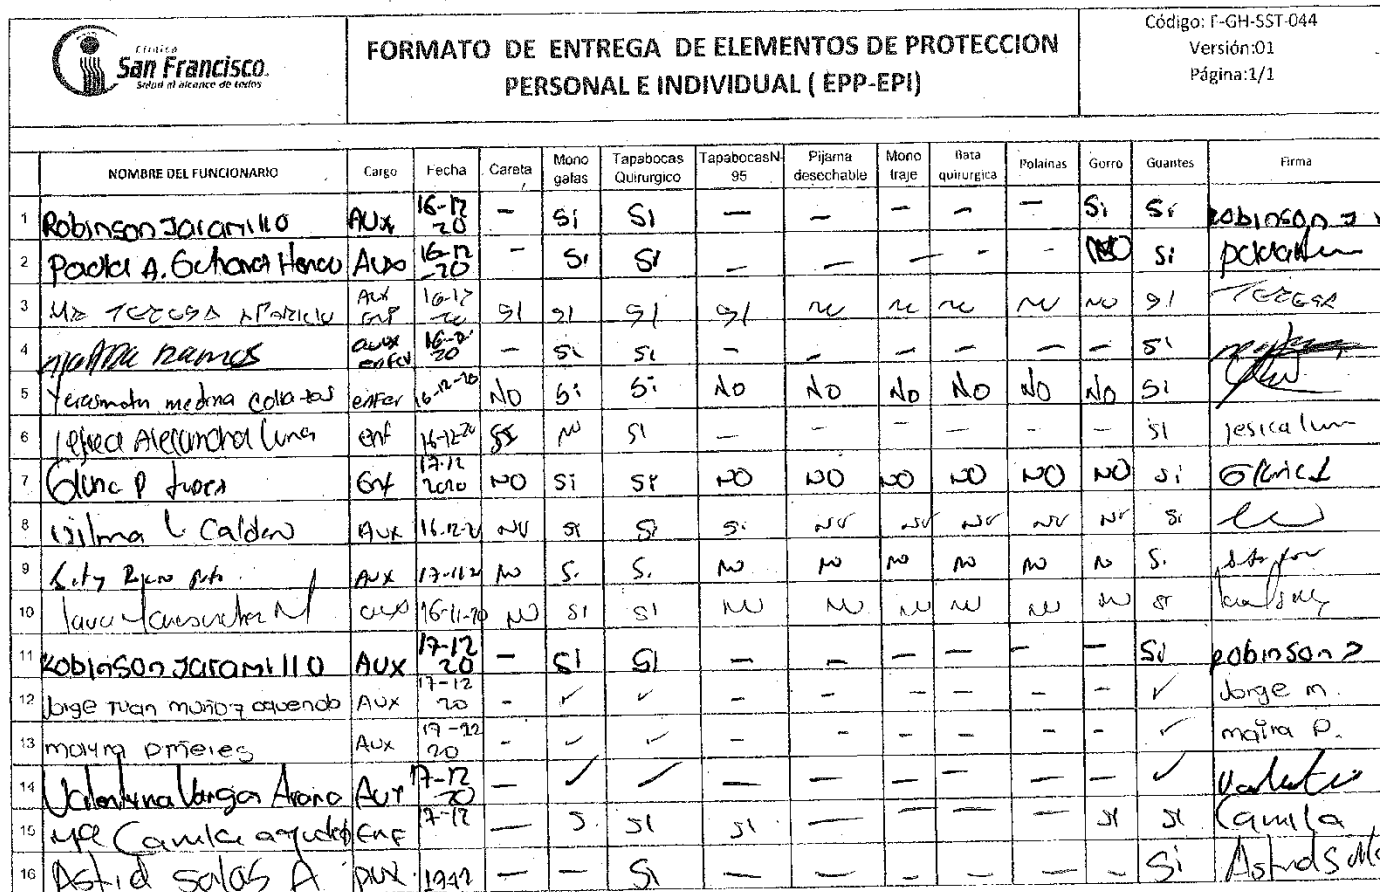 Clínica
San Francisco.
Salud al alcance de todos
FORMATO DE ENTREGA DE ELEMENTOS DE PROTECCION
PERSONAL E INDIVIDUAL ( EPP-EPI)
Código: F-GH-SST-044
Versión:01
Página:1/1
NOMBRE DEL FUNCIONARIO Cargo Fecha Careta Mono gafas Tapabocas Quirurgico TapabocasN-95 Pijama desechable Mono traje Bata quirurgica Polainas Gorro Guantes Firma
1 Robinson Jaramillo Aux 16-12 20 — Si Si — — — — — Si Si Robinson J
2 Paola A. Aux 16-12 -20 — Si Si — — — — — NO Si
3 Ma TERESA APARICIO Aux Enf 16-12 20 SI SI SI SI NO NO NO NO NO SI TERESA
4 Ramos aux enfer 20 — Si Si — — — — — — SI
5 medina enfer 16-12-20 No Si Si No No No No No No SI
6 Alejandra Luna enf 16-12-20 SI NO SI — — — — — — SI jesica
7 P Enf 17-12 2020 NO Si Si NO NO NO NO NO NO Si
8 Vilma L Aux 16-12-20 NO SI Si Si NO NO NO NO NO Si
9 Aux NO S. S. NO NO NO NO NO NO S.
10 aux NO SI SI NO NO NO NO NO NO SI
11 Robinson Jaramillo AUX 17-12 20 — SI SI — — — — — — Si Robinson J
12 Jorge Ivan muñoz oquendo AUX 17-12 20 - ✓ ✓ - - - - - - ✓ Jorge m.
13 mayra Aux 20 - ✓ ✓ - - - - - - ✓ maira P.
14 Valentina Vargas Aux 17-12 20 — ✓ ✓ — — — — — — ✓
15 Ma Camila Enf 17-12 — S SI SI — — — — SI SI Camila
16 Astrid Salas A Aux — — Si — — — — — — Si Astrid